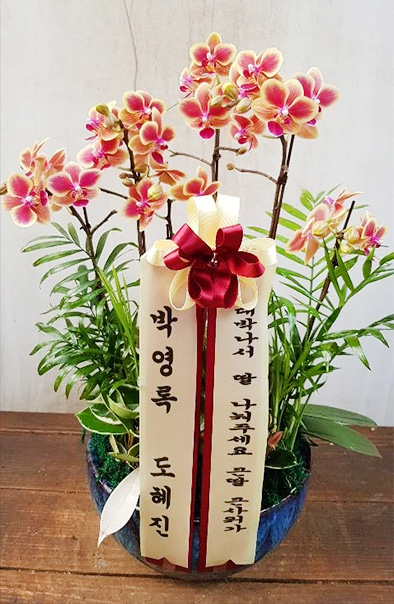 박영록 도혜진
대박나서 딸 나눠주세요 큰딸 큰사위가